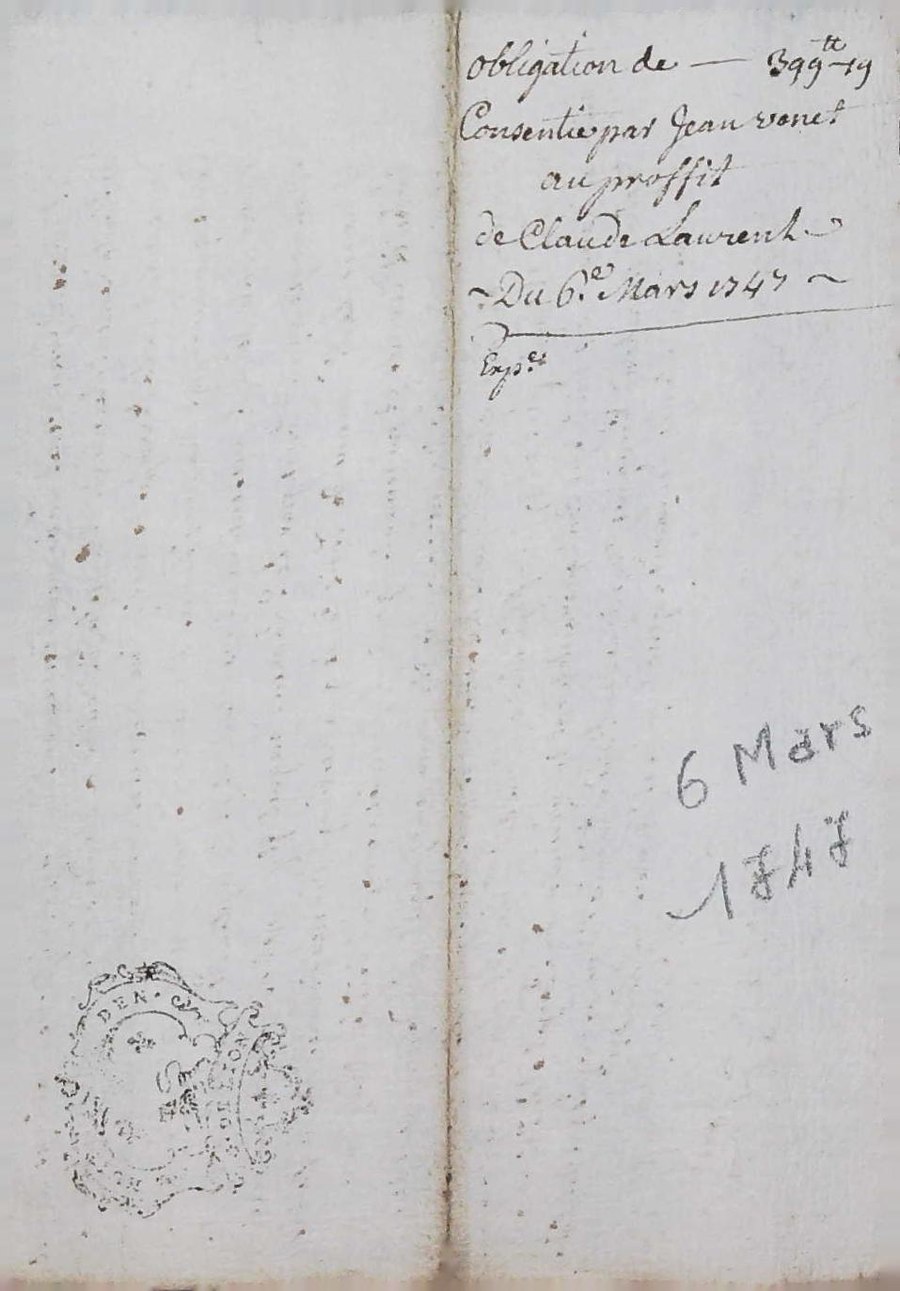 obligation de — 399tt-19
Consentie par Jean venet
au proffit
de Claude Laurent
~ Du 6.e Mars 1747 ~
Exp.ée
6 Mars
1747
DEN.